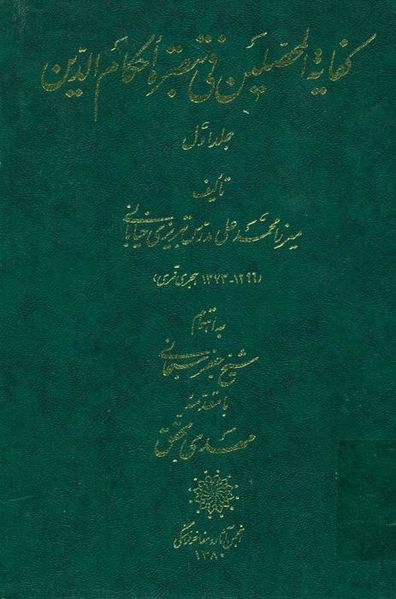 کفایة المحصلین فی تبصرة أحکام الدین
جلد اوّل
تألیف
میرزا محمد علی مدرس تبریزی خیابانی
(۱۲۹۶-۱۳۷۳ هجری قمری)
به اهتمام
شیخ جعفر سبحانی
با مقدمه
مهدی محقق
انجمن آثار و مفاخر فرهنگی
۱۳۸۰